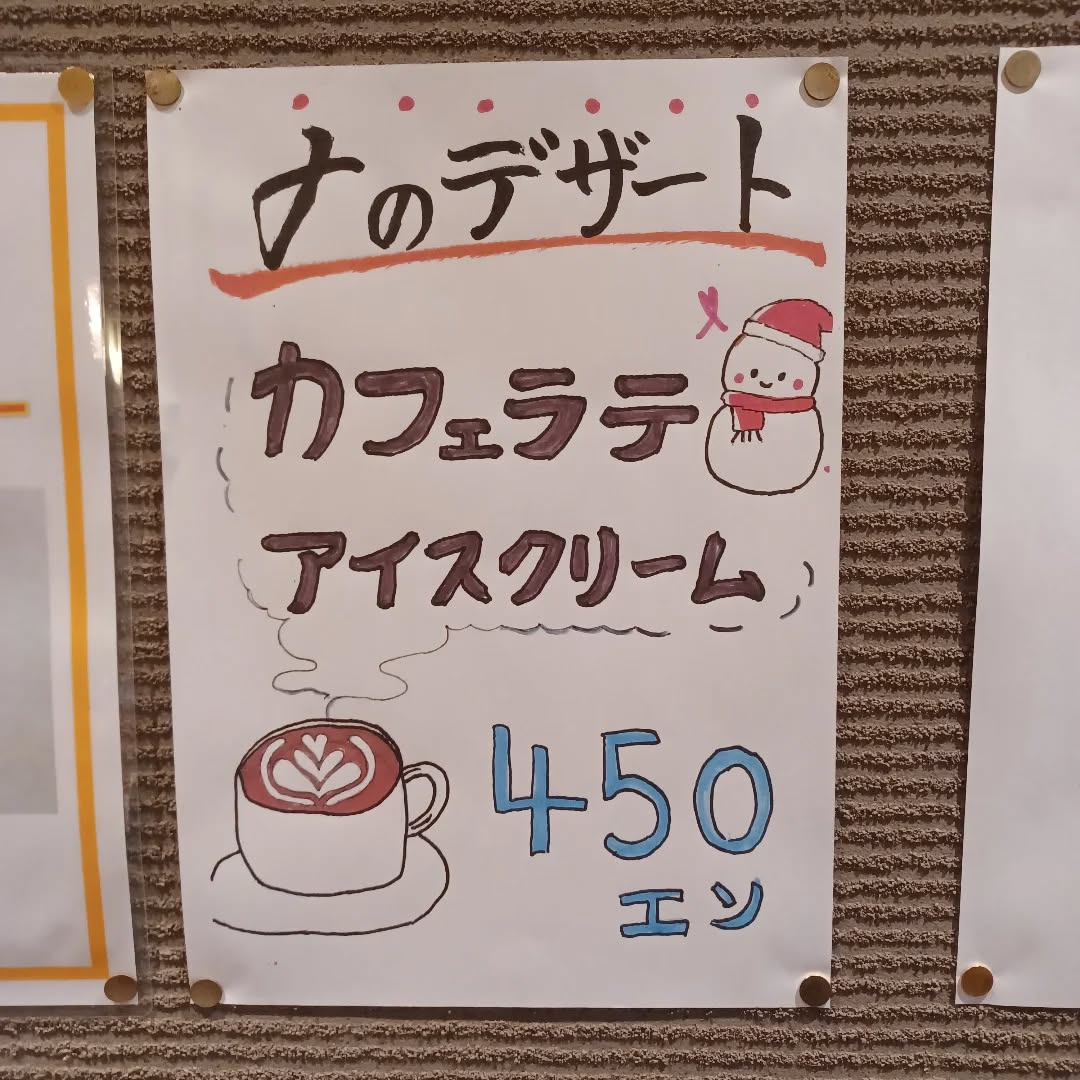 のデザート
カフェラテ
アイスクリーム
450
エン